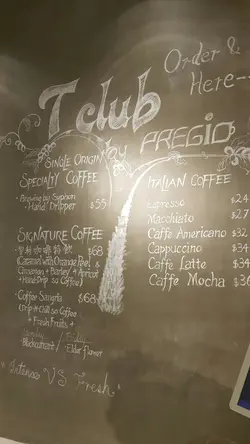 Order &
Here--
T club
by PAREGIO
SINGLE ORIGIN
SPECIALTY COFFEE
- Brewing by Syphon
Hand Dripper $55
SIGNATURE COFFEE
$68
Caramel with Orange Peel
Cinnamon + Barley + Apricot
+ Hand-Drip so Coffee)
- Coffee Sangria $68
(Drip & Chill so Coffee
+ Fresh Fruits +
Blackcurrant / Elder flower
"Intense VS Fresh"
ITALIAN COFFEE
Espresso $24
Macchiato $27
Caffe Americano $32
Cappuccino $34
Caffe Latte $34
Caffe Mocha $36